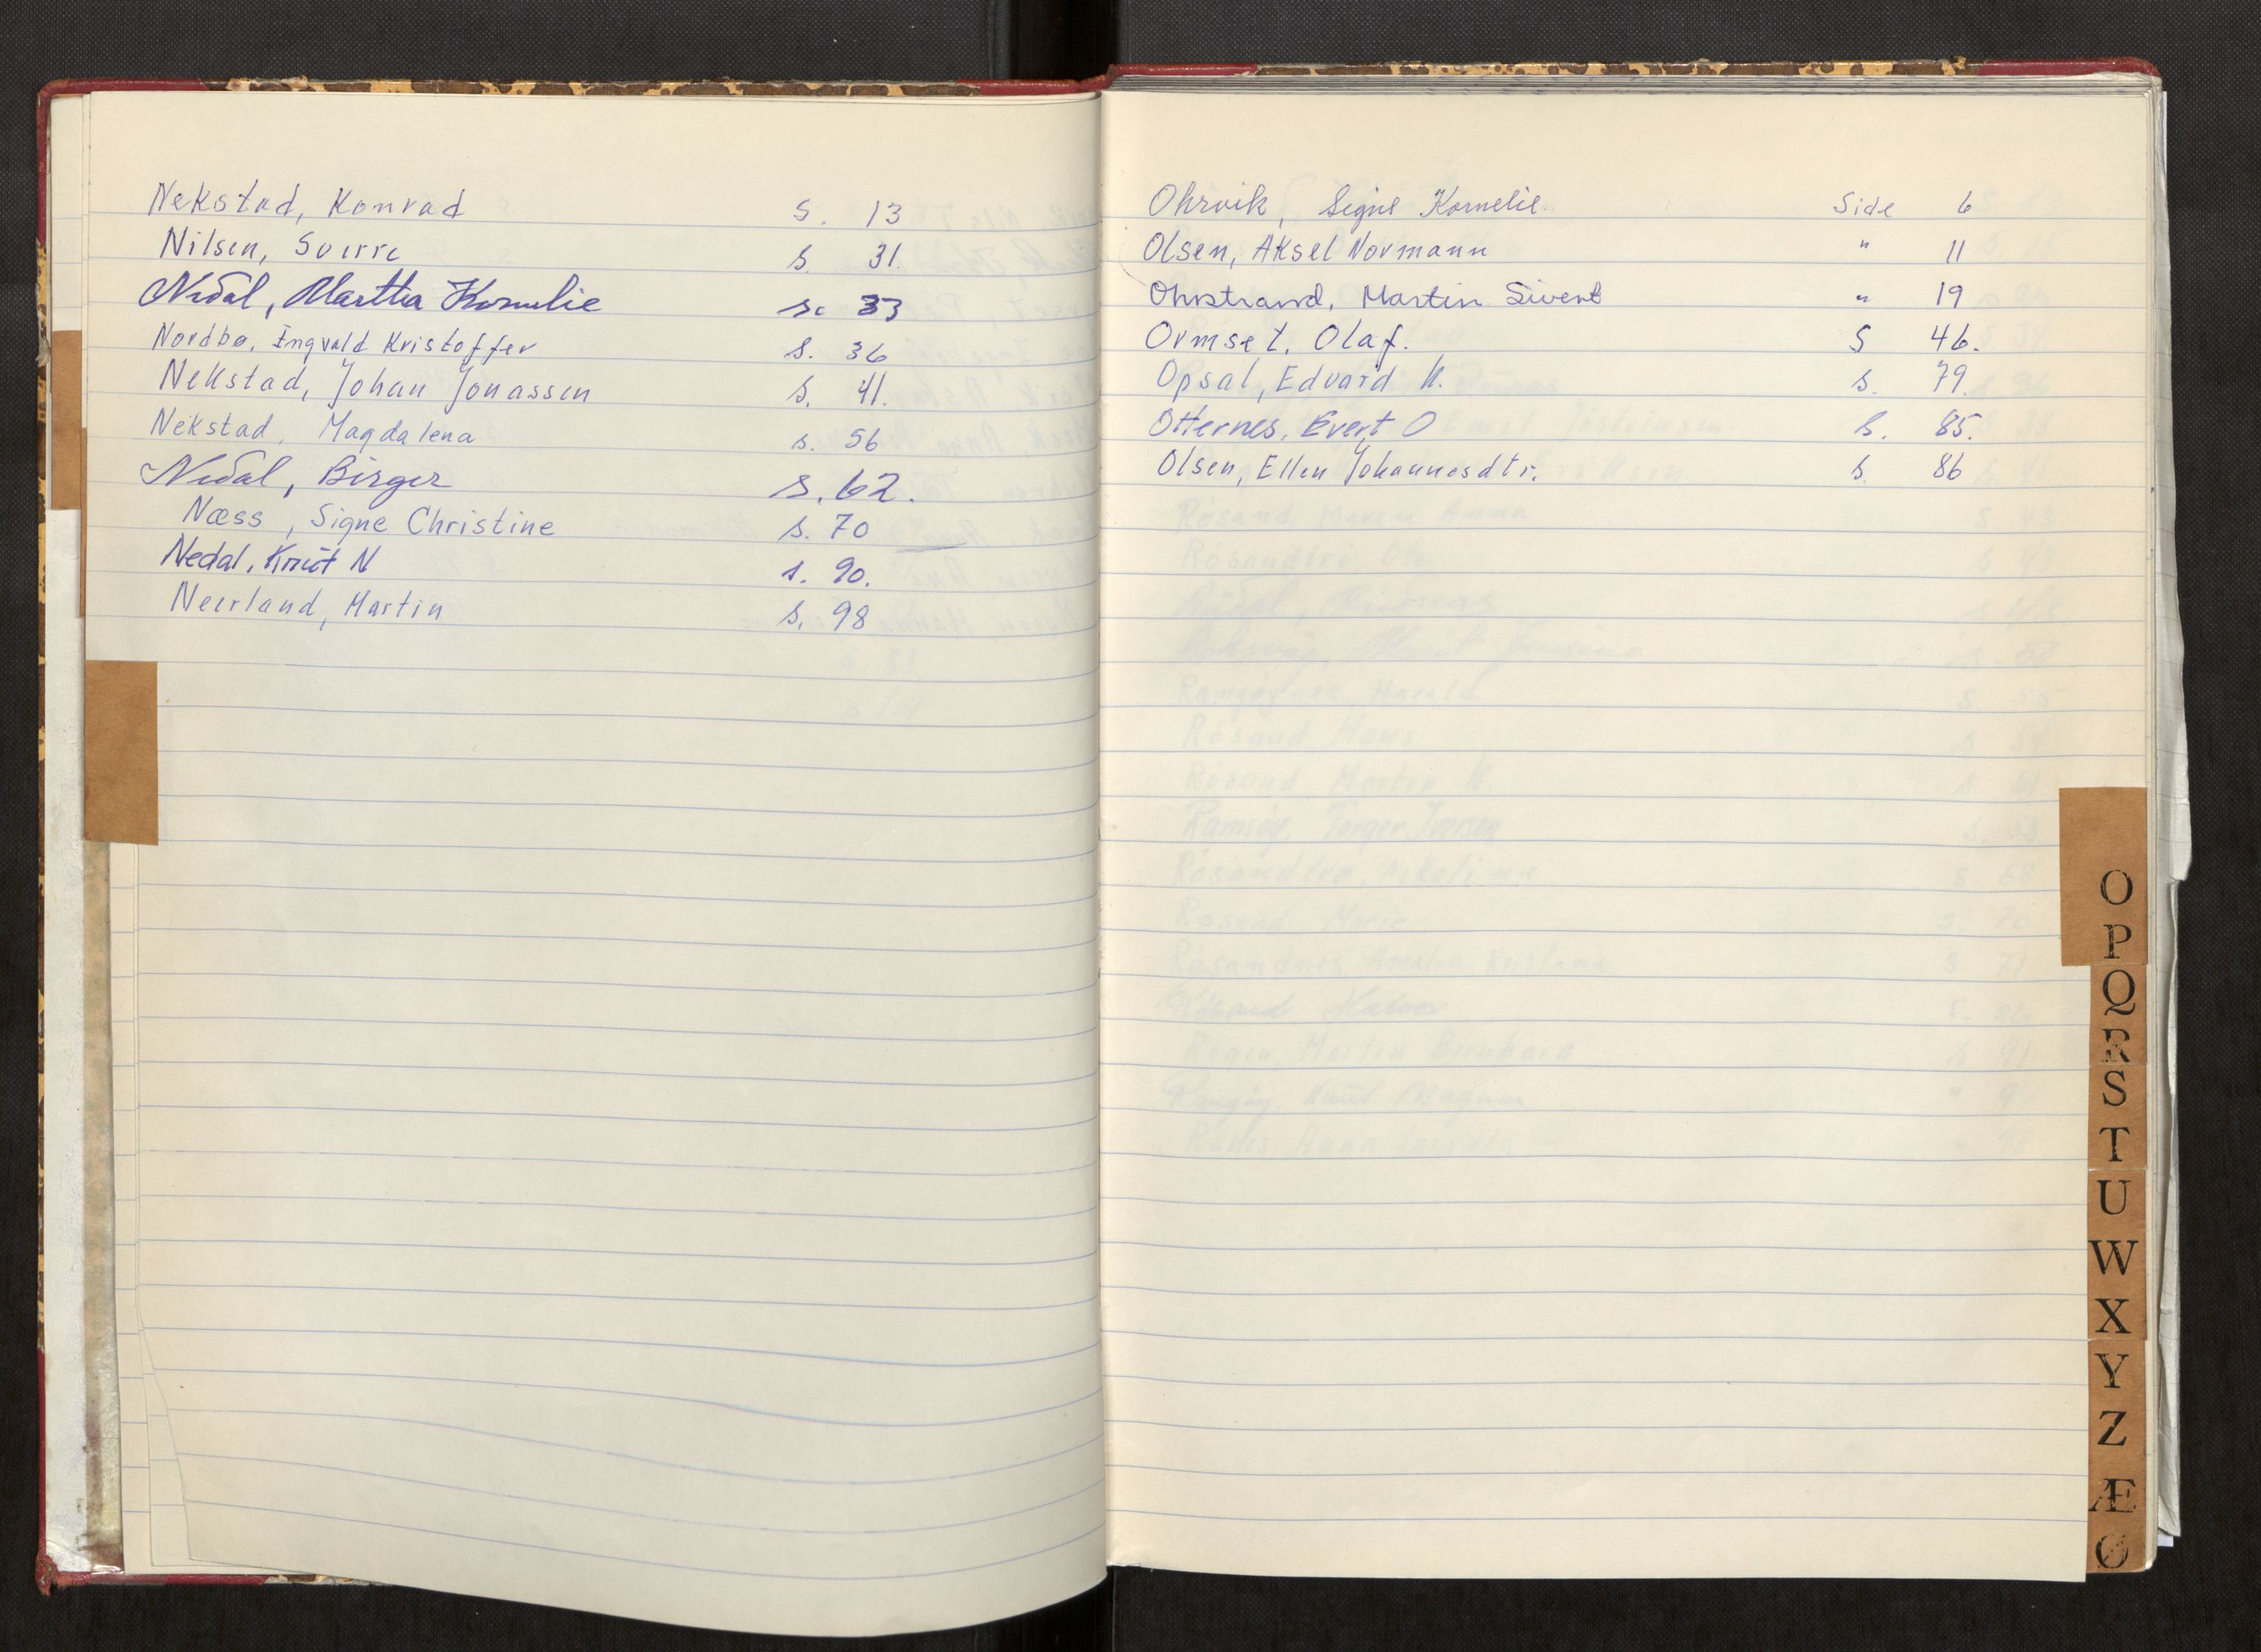 Nekstad, Konrad S. 13
Nilsen, Sverre s. 31.
Nedal, Martha Kornelie s. 33
Nordbø, Ingvald Kristoffer s. 36
Nekstad, Johan Jonassen s. 41.
Nekstad, Magdalena s. 56
Nedal, Birger s. 62.
Næss, Signe Christine s. 70
Nedal, Knut N s. 90.
Neerland, Martin s. 98
Ohrvik, Signe Kornelie Side 6
Olsen, Aksel Normann " 11
Ohrstrand, Martin Sivert " 19
Ormset, Olaf. S 46.
Opsal, Edvard K. s. 79.
Otternes, Evert O s. 85.
Olsen, Ellen Johannesdtr. s. 86
O
P
Q
R
S
T
U
W
X
Y
Z
Æ
Ø